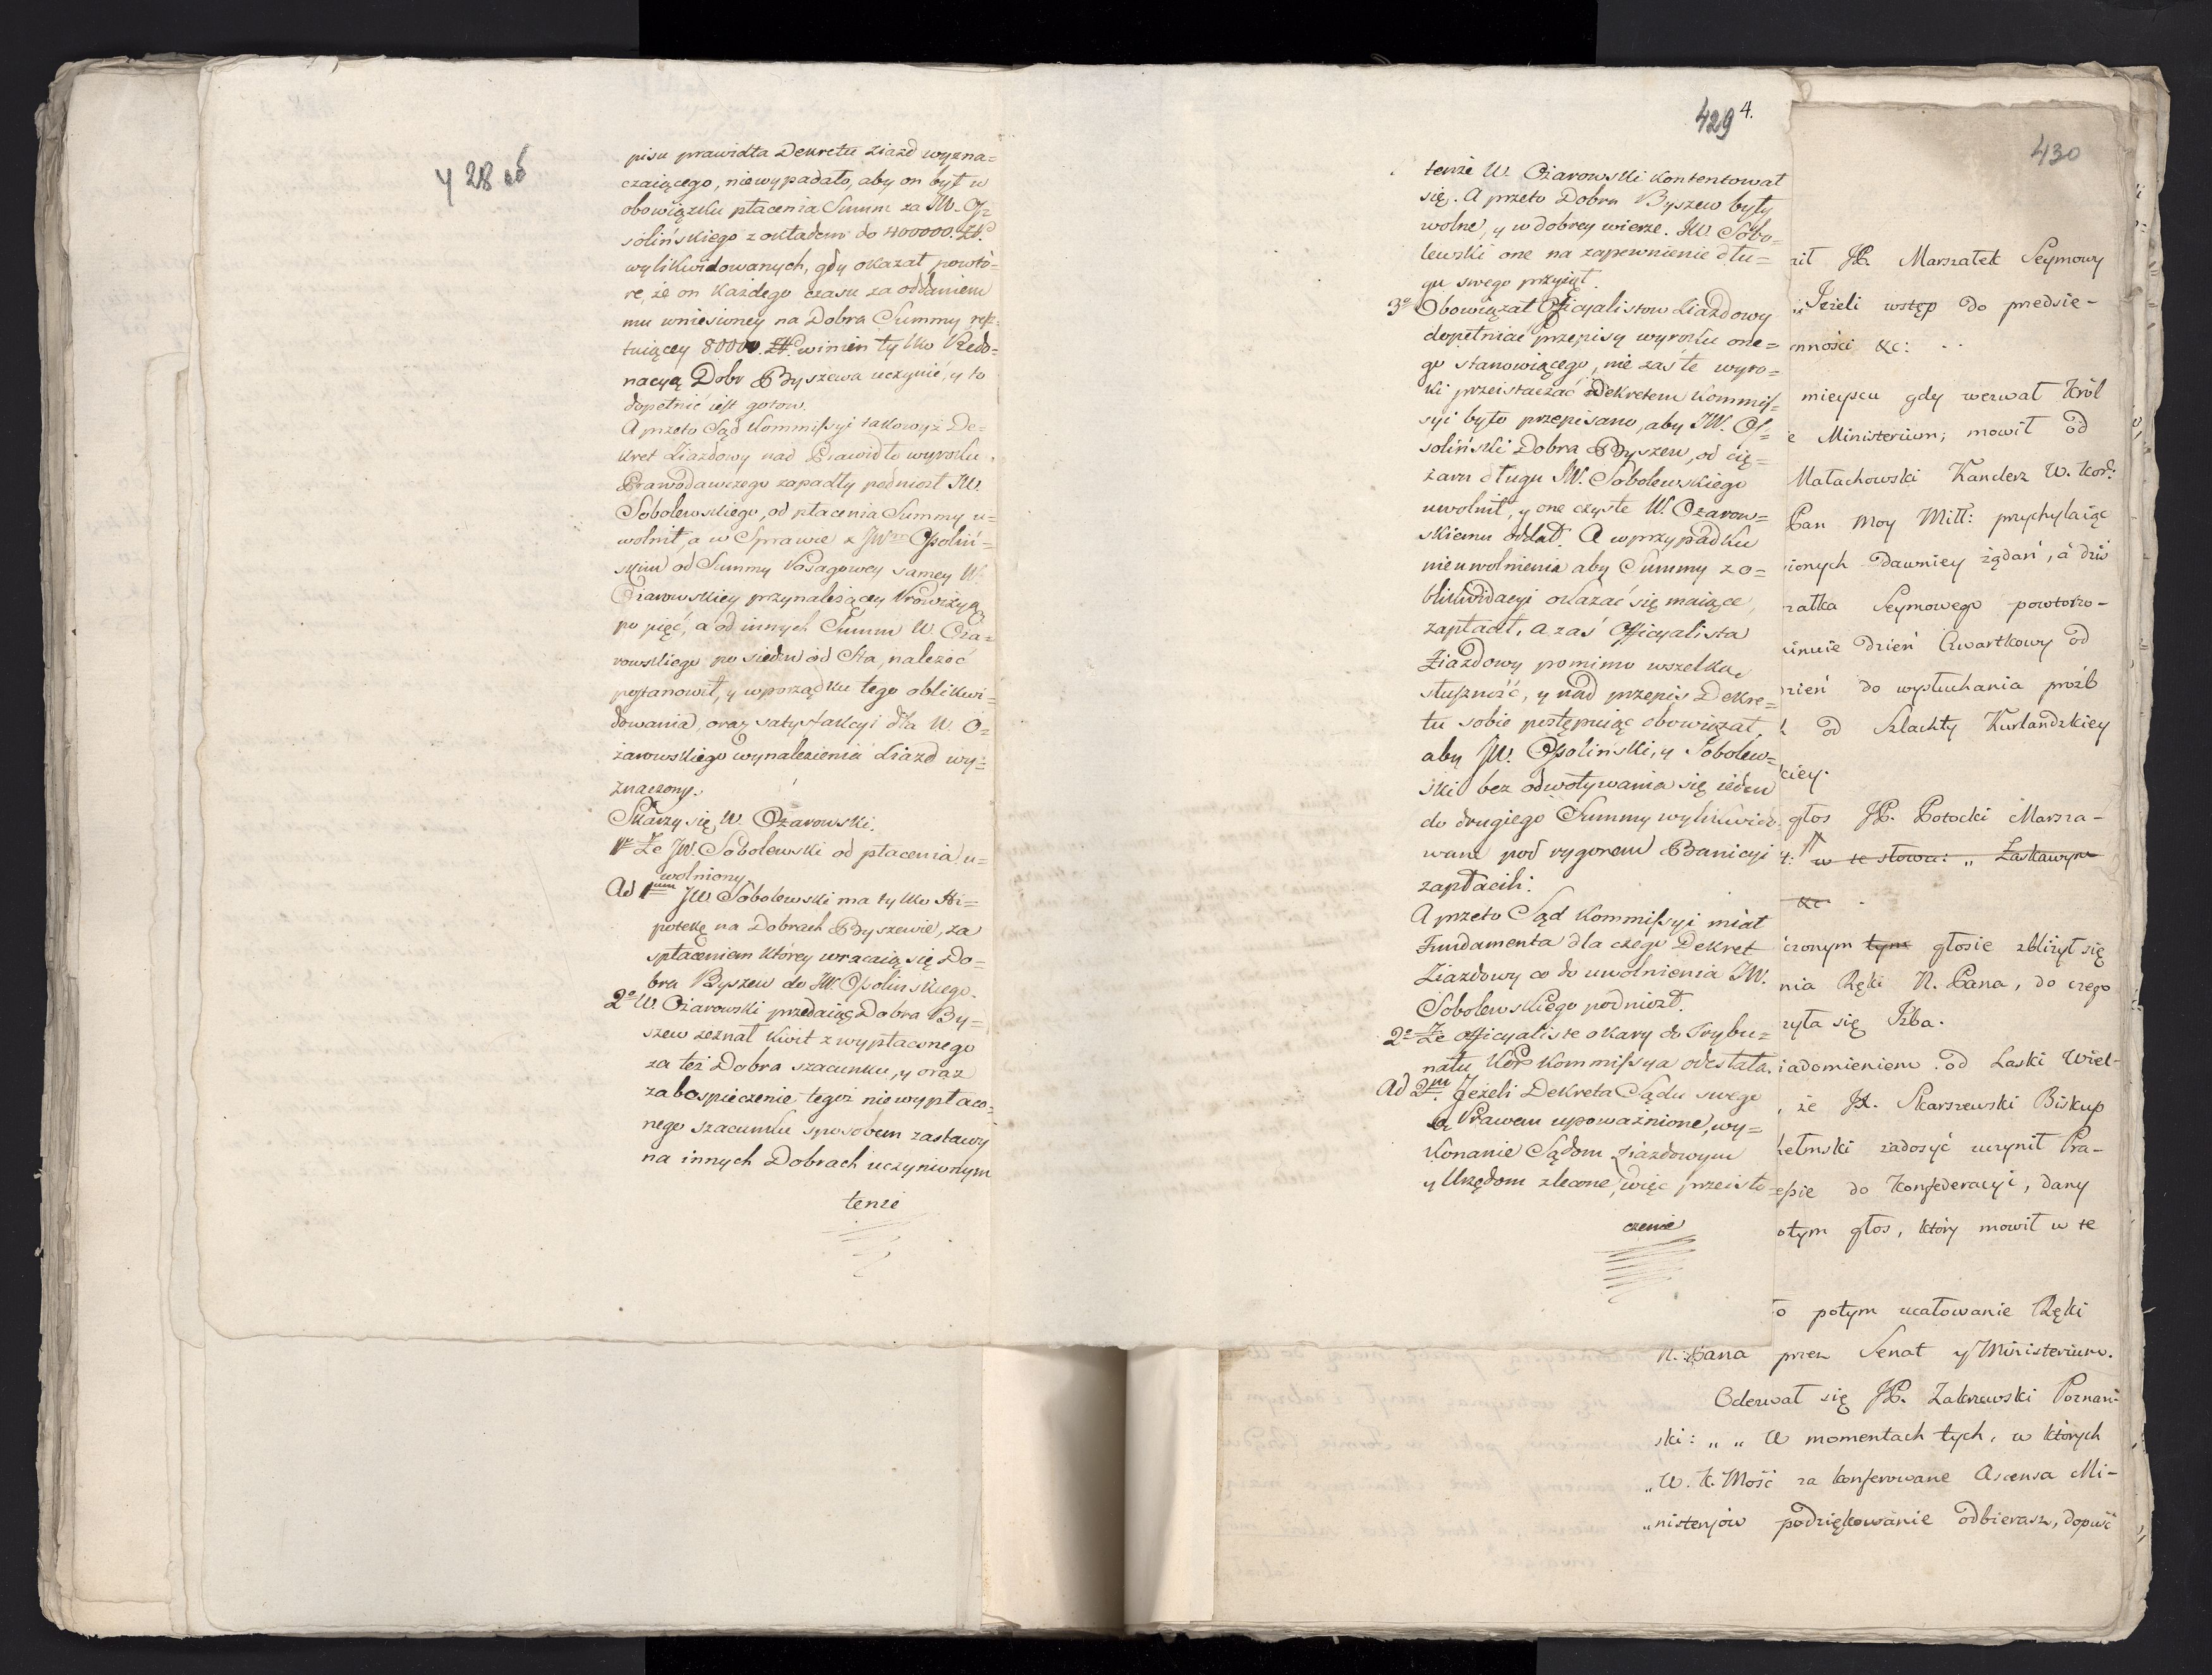 428 об
pisu prawidła Dekretu ziazd wyzna=
czaiącego, niewypadało, aby on był w
obowiązku płacenia Summ za JW. Oſ=
solińskiego z okładem do 400000. Zł.
wylikwidowanych, gdy okazał powtó-
re, że on każdego czasu za oddaniem
mu wniesioney na Dobra Summy
tuiącey 80000. Zł. winien tylko Redo=
nacyą Dobr Byszewa uczynić, y to
dopełnić iest gotow.
A przeto Sąd Kommiſsyi takowyż De=
kret Ziazdowy nad Prawidło wyroku
Prawodawczego zapadły podniosł JW.
Sobolewskiego, od płacenia Summy u=
wolnił, a w Sprawie z JWm Oſsoliń=
skim od Summy Posagowey samey W.
Ożarowskiey przynależącey Prowizyą
po pięć, a od innych Summ W. Oża=
rowskiego po siedm od Sta, należeć
postanowił, y wporządku tego oblikwi=
dowania, oraz satysfakcyi dla W. O=
żarowskiego wynalezienia Ziazd wy=
znaczony.
Skarzy się W. Ożarowski.
1o Że JW. Sobolewski od płacenia u=
wolniony.
Ad 1mum JW. Sobolewski ma tylko Hi=
potekę na Dobrach Byszewie, za
spłaceniem którey wracaią się Do=
bra Byszew do JW. Oſsolinskiego.
2o W. Ożarowski przedaiąc Dobra By=
szew zeznał kwit z wypłaconego
za też Dobra szacunku, y oraz
zabespieczenie tegoż niewypłaco=
nego szacunku sposobem zastawy
na innych Dobrach uczynionym
tenże
429 4.
tenże W. Ożarowski kontentował
się. A przeto Dobra Byszew były
wolne, y w dobrey wierze. JW. Sobo=
lewski one na zapewnienie dłu=
gu swego przyiął.
3o Obowiązał Officyalistow Ziazdowy
dopełniać przepisy wyroku one=
go stanowiącego, nie zaś te wyro=
ki przeistaczać Dekretem Kommiſ=
syi było przepisano, aby JW. Oſ=
soliński Dobra Byszew, od cię=
żaru długu JW. Sobolewskiego
uwolnił, y one czyste W. Ożarow=
skiemu oddał. A w przypadku
nieuwolnienia aby Summy z o=
blikwidacyi okazać się maiące,
zapłacił, a zaś Officyalista
Ziazdowy pomimo wszelką
słuszność, y nad przepis Dekre=
tu sobie postępuiąc obowiązał,
aby JW. Oſsolinski, y Sobolew=
ski bez odwoływania się ieden
do drugiego Summy wylikwido
wane pod rygorem Banicyi
zapłacili.
A przeto Sąd Kommiſsyi miał
Fundamenta dla czego Dekret
Ziazdowy co do uwolnienia JW.
Sobolewskiego podniosł.
2o Że officyaliste o kary do Trybu=
nału Kor Kommiſsya odesłała.
Ad 2m Jeżeli Dekreta Sądu swego
są Prawem upoważnione, wy=
konanie Sądom ziazdowym
y Urzędom zlecone, więc przeisto
czenie
430
ził JP. Marszałek Seymowy
„Jeżeli wstęp do przedsie-
nności &c:
mieyscu gdy wezwał Król
e Ministerium; mowił od
Małachowski Kanclerz W. Kor:
Pan Moy Mił: przychylaiąc
ionych dawniey żądań, a dziś
załka Seymowego powtorzo-
inuie dzień Czwartkowy od
zień do wysłuchania prożb
od Szlachty Kurlandzkiey
kiey.
głos JP. Potocki Marsza-
4: w te słowa: „Łaskawym
&c
czonym tym głosie zbliżył się
nia Ręki N. Pana, do czego
zyła się Izba.
iadomieniem od Laski Wiel-
, że JX. Skarszewski Biskup
hełmski zadosyć uczynił Pra-
eſsie do Konfederacyi, dany
otym głos, który mowił w te
to potym ucałowanie Ręki
N. Pana przez Senat y Ministerium.
Odezwał się JP. Zakrzewski Poznań-
ski: „ „ W momentach tych, w których
„W. K. Mość za konferowane Ascensa Mi-
„nisteryów podziękowanie odbierasz, dopuść